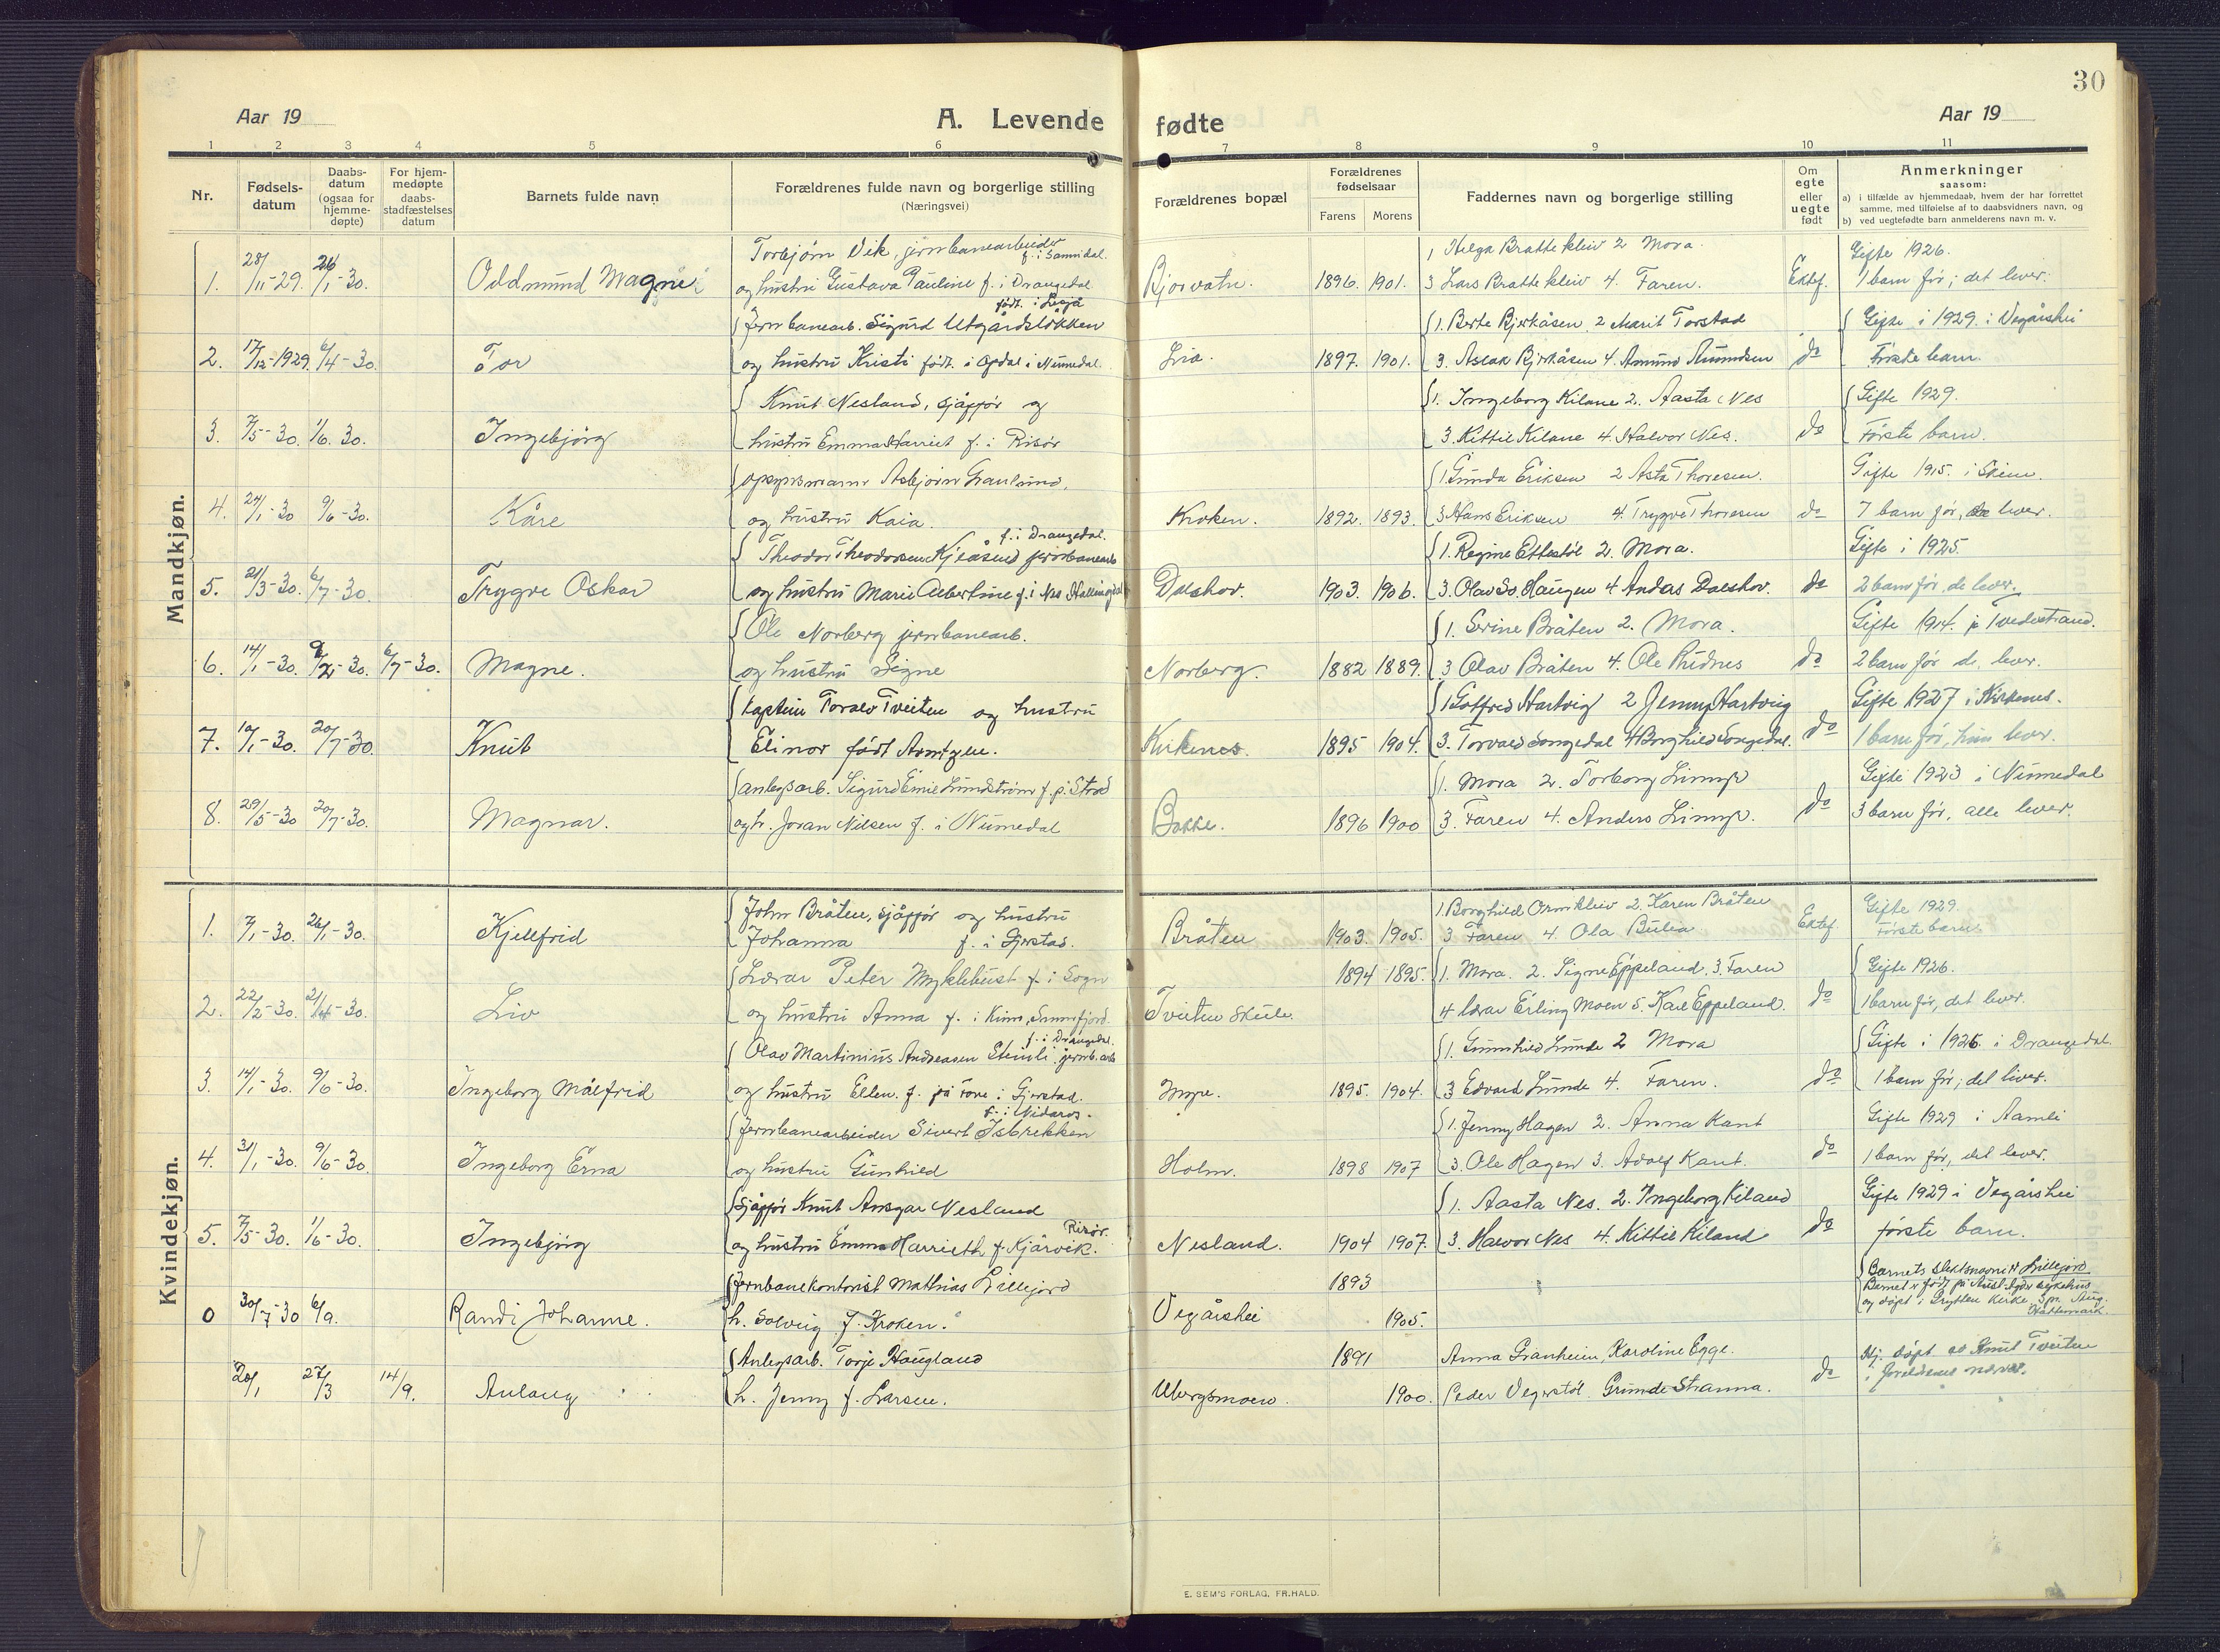 30
Aar 19
A. Levende
fødte
Aar 19
1 2 3 4 5 6 7 8 9 10 11
Nr.
Fødsels-
datum
Daabs-
datum
(ogsaa for
hjemme-
døpte)
For hjem-
medøpte
daabs-
stadfæstelses
datum
Barnets fulde navn
Forældrenes fulde navn og borgerlige stilling
(Næringsvei)
Forældrenes bopæl
Forældrenes
fødselsaar
Farens Morens
Faddernes navn og borgerlige stilling
Om
egte
eller
uegte
født
Anmerkninger
saasom:
a) i tilfælde av hjemmedaab, hvem der har forrettet
samme, med tilføielse af to daabsvidners navn, og
b) ved uegtefødte barn anmelderens navn m. v.
Mandkjøn.
Torbjørn Vik, jernbanearbeider f. i Sannidal. 1 Helga Brattekleiv 2 Mora. Gifte 1926.
1. 28/11-29. 26/1-30. Oddmund Magne og hustru Gustava Pauline f. i Drangedal Bjorvatn. 1896. 1901. 3 Lars Brattekleiv 4. Faren. Ektef. 1 barn før; det lever.
født i Lesja
Jernbanearb. Sigurd Utgårdsløkken 1. Berte Bjørkåsen 2 Marit Torstad Gifte i 1929. i Vegårshei
2. 17/12-1929. 6/4-30. Tor og hustru Kristi født i Opdal i Numedal. Lia. 1897. 1901. 3. Aslak Bjørkåsen 4. Amund Amundsen do Første barn.
Knut Nesland, sjåfør og 1. Ingeborg Kilane 2. Aasta Nes Gifte 1929.
3. 7/5-30. 1/6. 30. Ingebjørg hustru Emma Harriet f. i Risør 3. Kittil Kilane 4. Halvor Nes. do Første barn.
opsynsmann Asbjørn Granlund, 1 Gunda Eriksen 2 Asta Thoresen. Gifte 1915. i Skien.
4. 24/1-30 9/6-30. Kåre og hustru Kaia. Kroken. 1892. 1893. 3 Hans Eriksen 4. Trygve Thoresen do 7 barn før, de lever.
f. i Drangedal.
Theodor Theodorsen Kjeåsen jernbanearb 1. Regine Ettestøl 2. Mora. Gifte i 1925.
5. 21/3-30. 6/7-30. Trygve Oskar og hustru Marie Albertine f. i Nes Hallingdal Dalshov. 1903. 1906. 3. Olav So. Haugen 4 Anders Dalshov. do 2 barn før, de lever.
Ole Norberg jernbanearb. 1. Serine Bråten 2. Mora. Gifte 1914. i Tvedestrand.
6. 14/1-30. 9/2-30. 6/7-30. Magne. og hustru Signe Norberg. 1882 1889. 3 Olav Bråten 4. Ole Ridnes do 2 barn før de lever.
Kaptein Toralv Tveiten og hustru 1 Gotfred Hartvig 2 Jenny Hartvig Gifte 1927 i Kirkenes.
7. 19/1-30. 20/7-30. Knut Elinor født Arntzen. Kirkenes. 1895 1904. 3. Torvald Songedal 4 Borghild Songedal. do 1 barn før, hun lever.
anlegsarb. Sigurd Emil Lundstrøm f. p. Strød 1. Mora 2. Torborg Limyr Gifte 1923 i Numedal
8. 29/5-30 20/7-30. Magnar. og h. Joran Nilsen f. i Numedal Bakke. 1896 1900 3. Faren 4. Anders Limyr. do 3 barn før, alle lever.
Kvindekjøn.
John Bråten, sjåfør og hustru 1. Borghild Ormkleiv 2. Karen Bråten Gifte 1929.
1. 7/1-30. 26/1-30. Kjellfrid Johanna f. i Gjerstad. Bråten 1903. 1905. 3 Faren 4. Ola Bulia Ektef. Første barn.
Lærar Peter Myklebust f. i Sogn 1894 1895. 1. Mora. 2. Signe Eppeland. 3. Faren Gifte 1926.
2. 22/2-30. 21/4-30. Liv og hustru Anna f. i Kinn, Sunnfjord. Tveiten skule. 4 lærar Erling Moen 5. Karl Eppeland. do 1 barn før, det lever.
f. i Drangedal.
Olav Martinius Andreasen Stenli jernb. arb 1. Gunnhild Lunde 2 Mora Gifte i 1926. i Drangedal
3. 14/1-30. 9/6-30. Ingeborg Målfrid og hustru Ellen f. på Fone i Gjerstad. Myre. 1895. 1904. 3 Edvard Lunde 4. Faren. do 1 barn før; det liver.
f. i Nidaros.
Jernbanearbeider Sivert Isbrekken 1. Jenny Hagen 2. Anna Kant Gifte 1929 i Aamli
4. 31/1-30. 9/6-30. Ingeborg Erna og hustru Gunhild Holm. 1898 1907 3. Ole Hagen 3. Adolf Kant. do 1 barn før, det lever.
Sjåfør Knut Ansgar Nesland 1. Aasta Nes. 2. Ingeborg Kiland Gifte 1929 i Vegårshei
5. 7/5-30. 1/6-30. Ingebjørg og hustru Emma Harrieth f. Kjårvik. Risør. Nesland. 1904 1907. 3. Halvor Nes 4. Kittil Kiland do første barn.
Jernbanekontorist Mathias Lillejord 1893 Barnets slektsnavn er Lillejord.
Barnet er født på Aust-Agder sykehus
0 30/7-30 6/9. Randi Johanne. h. Solveig f. Kroken. Vegårshei 1905. og døpt i Grytten kirke. Spr. Aug.
Anlegsarb. Torje Haugland 1891 Anna Granheim, Karoline Egge. Hj. døpt av Knut Tveiten
20/1 27/3 14/9. Aulaug h. Jenny f. Larsen. Ubergsmoen. 1900. Peder Vegerstøl Grunde Stranna. do i foreldrenes nærvær.
E. SEM'S FORLAG, FR.HALD.